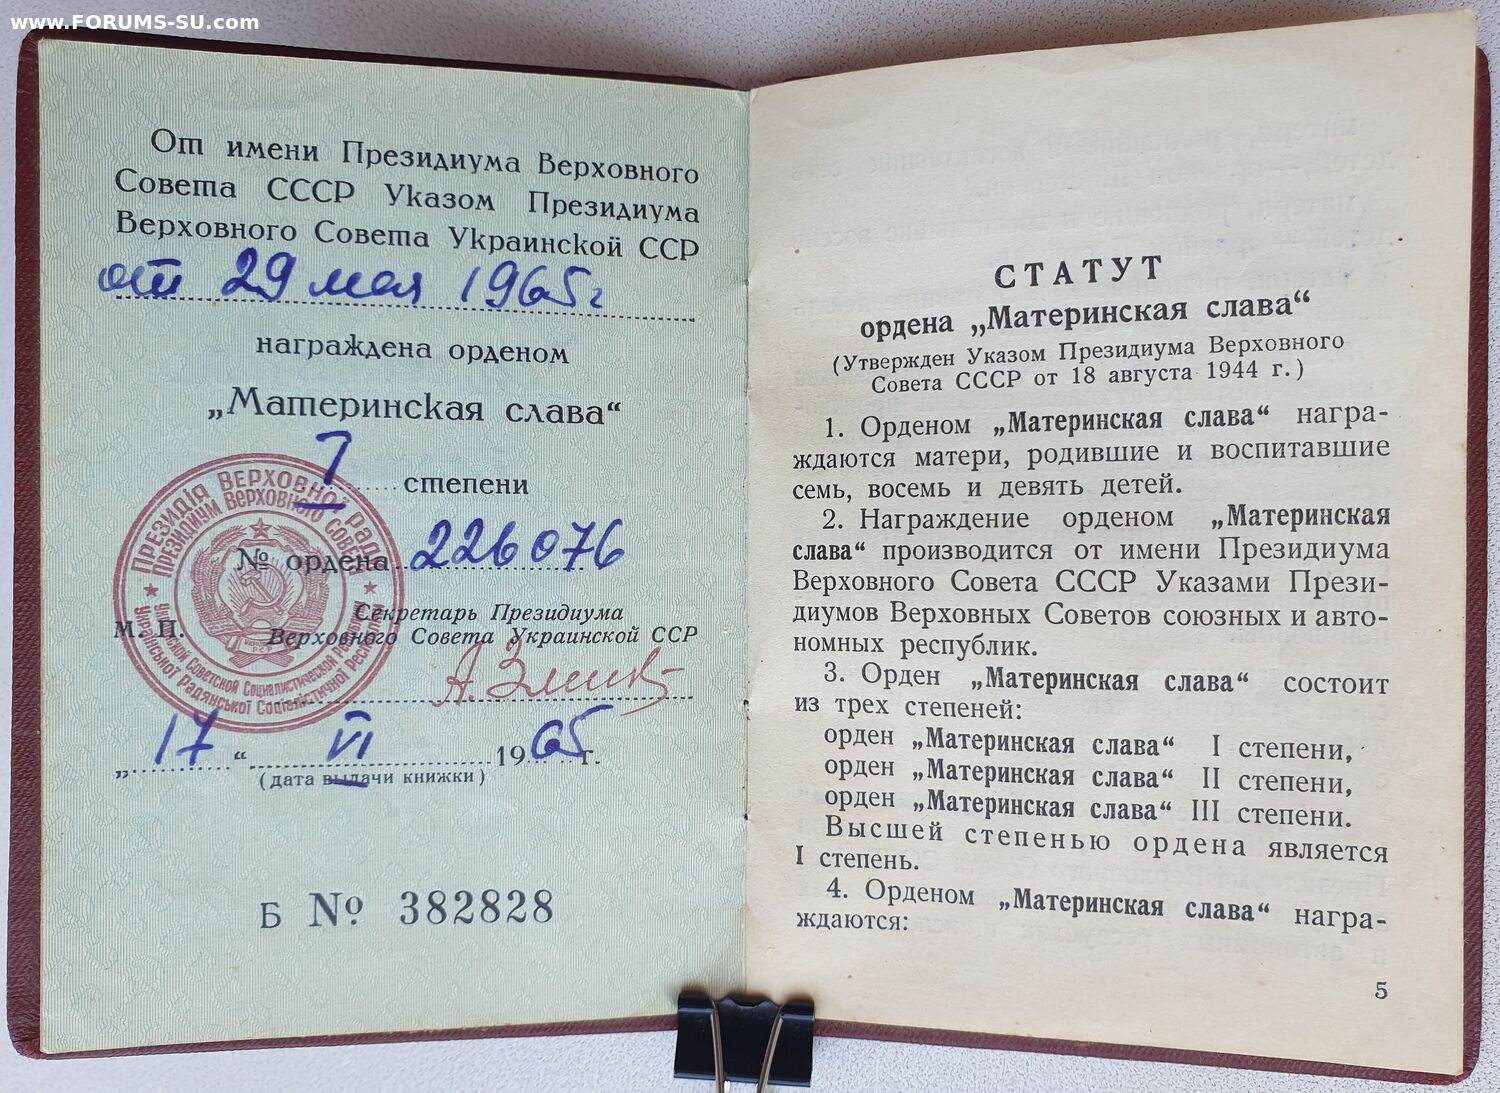 www.FORUMS-SU.com
От имени Президиума Верховного
Совета СССР Указом Президиума
Верховного Совета Украинской ССР
от 29 мая 1965 г
награждена орденом
„Материнская слава“
I степени
№ ордена 226076
Секретарь Президиума
М. П. Верховного Совета Украинской ССР
„17“ VI 1965 г.
(дата выдачи книжки)
Б № 382828
ПРЕЗИДІЯ ВЕРХОВНОЇ РАДИ
УКРАЇНСЬКОЇ РАДЯНСЬКОЇ СОЦІАЛІСТИЧНОЇ РЕСПУБЛІКИ
ПРЕЗИДИУМ ВЕРХОВНОГО СОВЕТА
УКРАИНСКОЙ СОВЕТСКОЙ СОЦИАЛИСТИЧЕСКОЙ РЕСПУБЛИКИ
СТАТУТ
ордена „Материнская слава“
(Утвержден Указом Президиума Верховного
Совета СССР от 18 августа 1944 г.)
1. Орденом „Материнская слава“ награ-
ждаются матери, родившие и воспитавшие
семь, восемь и девять детей.
2. Награждение орденом „Материнская
слава“ производится от имени Президиума
Верховного Совета СССР Указами Прези-
диумов Верховных Советов союзных и авто-
номных республик.
3. Орден „Материнская слава“ состоит
из трех степеней:
орден „Материнская слава“ I степени,
орден „Материнская слава“ II степени,
орден „Материнская слава“ III степени.
Высшей степенью ордена является
I степень.
4. Орденом „Материнская слава“ награ-
ждаются:
5